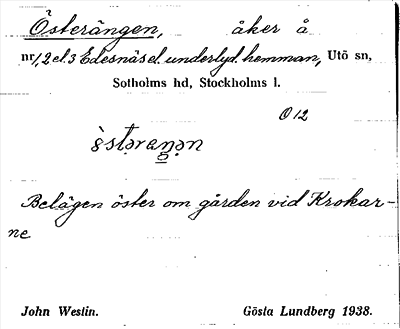 Österängen, åker å
nr 1, 2 el. 3 Edesnäs el. underlyd. hemman, Utö sn,
Sotholms hd, Stockholms l.
Ö 12
Belägen öster om gården vid Krokar-
ne
John Westin. Gösta Lundberg 1938.